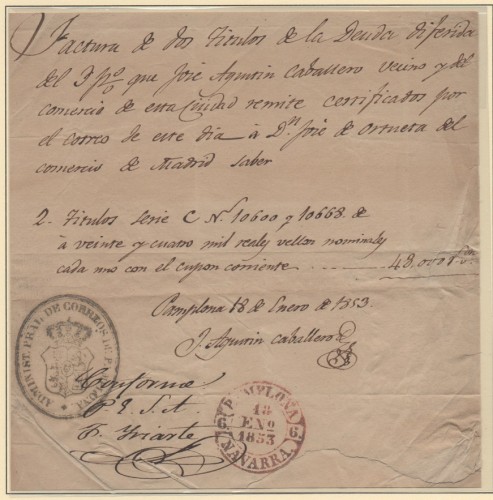 Factura de dos Titulos de la Deuda diferida
del 3 p% que José Agustin Caballero vecino y del
comercio de esta Ciudad remite certificados por
el correo de este dia á Dn José de Ortueta del
comercio de Madrid saber
2. Titulos serie C Ns 10600 y 10668 de
á veinte y cuatro mil reales vellon nominales
cada uno con el cupon corriente ........ 48.000 rvn
Pamplona 18 de Enero de 1853.
J. Agustin Caballero
ADMINIST. PRAL. DE CORREOS DE PAMPLONA
Conforme
P. E. S. A.
F. Yriarte
PAMPLONA
6. 18 6.
ENº
1853
NAVARRA.